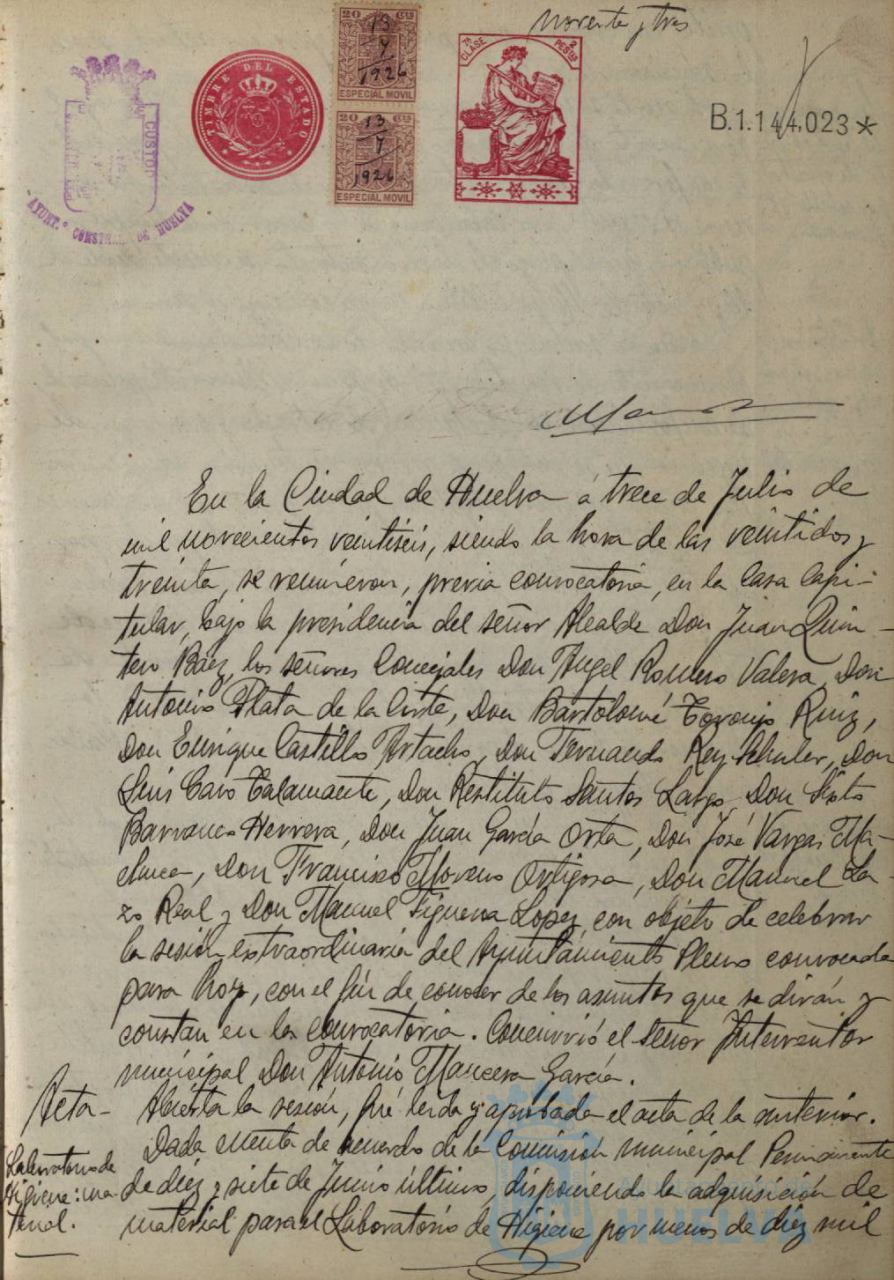 noventa y tres
CUSTOD
AYUNT.º CONSTNAL DE HUELVA
TIMBRE DEL ESTADO
20 Cs
13
7
1926
ESPECIAL MOVIL
20 Cs
13
7
1926
ESPECIAL MOVIL
7ª CLASE
2 PESTAS
B.1.144,023*
En la Ciudad de Huelva á trece de Julio de
mil novecientos veintiseis, siendo la hora de las veintidos y
treinta, se reunieron, previa convocatoria, en la Casa Capi-
tular, bajo la presidencia del señor Alcalde Don Juan Quin-
tero Báez, los señores Concejales Don Angel Romero Valera, Don
Antonio Plata de la Corte, Don Bartolomé Toronjo Ruiz,
Don Enrique Castillo Artacho, Don Fernando Rey Schuler, Don
Luis Caro Talamante, Don Restituto Santos Largo, Don Sixto
Barranco Herrera, Don Juan García Orta, Don José Vargas Ma-
chuca, Don Francisco Moreno Ortigosa, Don Manuel La-
zo Real y Don Manuel Figueroa Lopez, con objeto de celebrar
la sesión extraordinaria del Ayuntamiento Pleno convocada
para hoy, con el fin de conocer de los asuntos que se dirán y
constan en la convocatoria. Concurrió el señor Interventor
municipal Don Antonio Mancera García.
Acta- Abierta la sesión, fué leida y aprobada el acta de la anterior.
Dada cuenta de acuerdo de la Comisión municipal Permanente
Laboratorio de
Higiene: ma-
terial.
de diez y siete de Junio último, disponiendo la adquisición de
material para el Laboratorio de Higiene por menos de diez mil
HUELVA